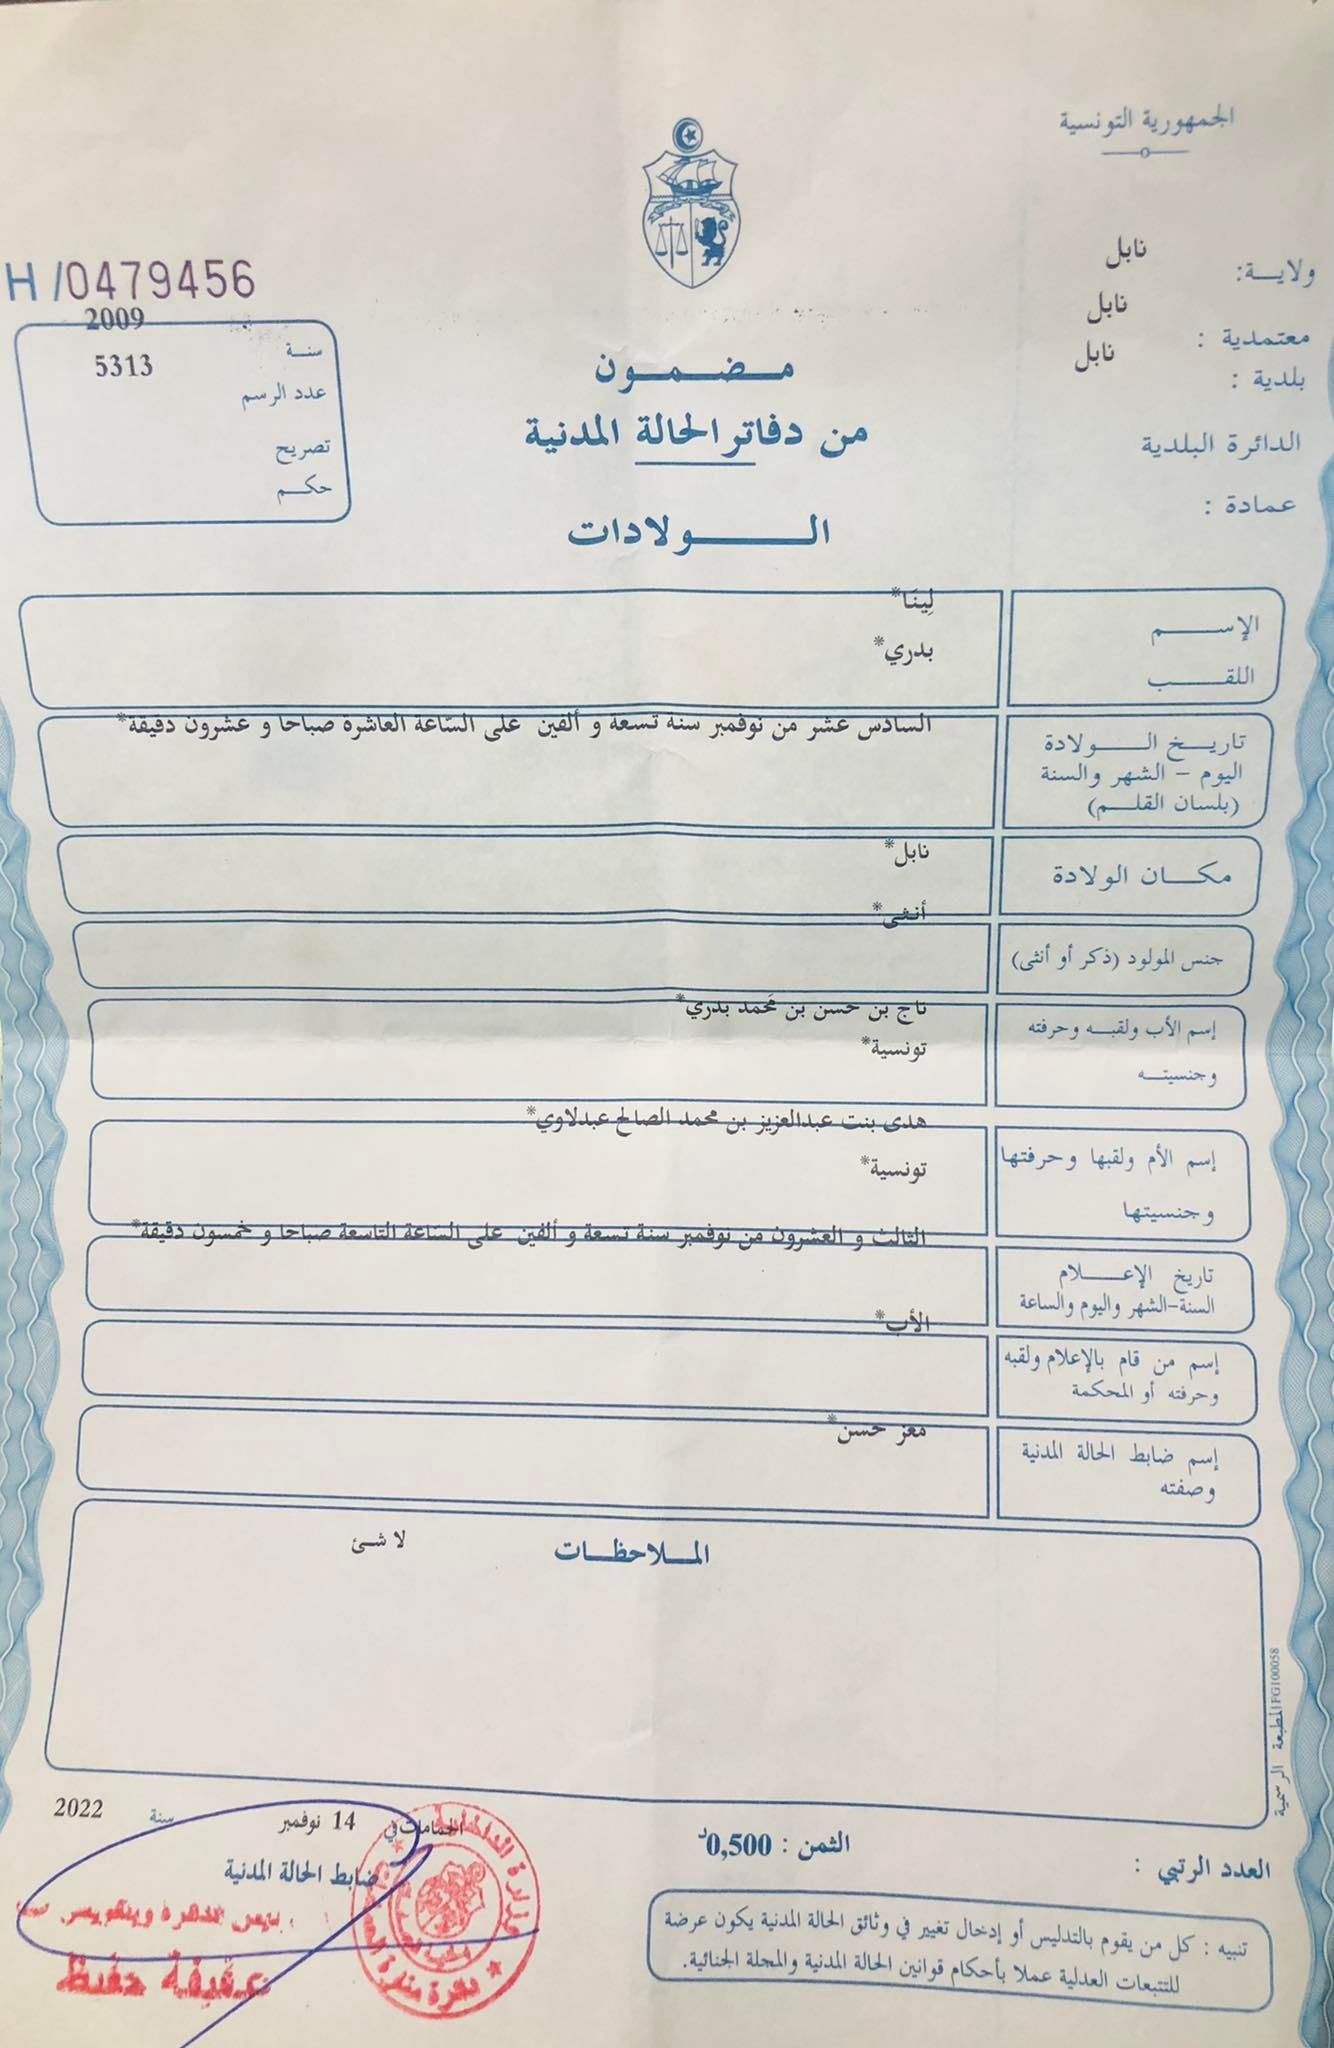 الجمهورية التونسية
ولايــة: نابل
معتمدية : نابل
بلدية : نابل
الدائرة البلدية
عمادة :
H/0479456
سنـة 2009
عدد الرسم 5313
تصريح
حكـم
مـضـمـون
من دفاتر الحالة المدنية
الـولادات
الإسـم لِينَا*
اللقـب بدري*
تاريـخ الـولادة
اليوم - الشهر والسنة
(بلسان القلـم)
السادس عشر من نوفمبر سنة تسعة و ألفين على السّاعة العاشرة صباحا و عشرون دقيقة*
مكـان الولادة نابل*
جنس المولود (ذكر أو أنثى) أنثى*
إسم الأب ولقبـه وحرفته
وجنسيتـه
ناج بن حسن بن مَحمد بدري*
تونسية*
إسم الأم ولقبها وحرفتها
وجنسيتها
هدى بنت عبدالعزيز بن محمد الصالح عبدلاوي*
تونسية*
تاريخ الإعـلام
السنة-الشهر واليوم والساعة
الثالث و العشرون من نوفمبر سنة تسعة و ألفين على السّاعة التاسعة صباحا و خمسون دقيقة*
إسم من قام بالإعلام ولقبه
وحرفته أو المحكمة
الأب*
إسم ضابط الحالة المدنية
وصفته
معز حسن*
الملاحظات
لا شئ
المطبعة الرسمية FG100058
الحمامات في 14 نوفمبر سنة 2022
ضابط الحالة المدنية
حفيظ
العدد الرتبي :
الثمن : 0,500د
تنبيه : كل من يقوم بالتدليس أو إدخال تغيير في وثائق الحالة المدنية يكون عرضة
للتتبعات العدلية عملا بأحكام قوانين الحالة المدنية والمجلة الجنائية.